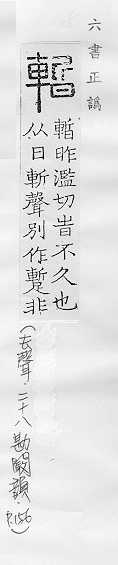 六書正譌
暫
暫昨濫切旹不久也
从日斬聲別作蹔非
(去聲.二十八勘闞韻.P.156)